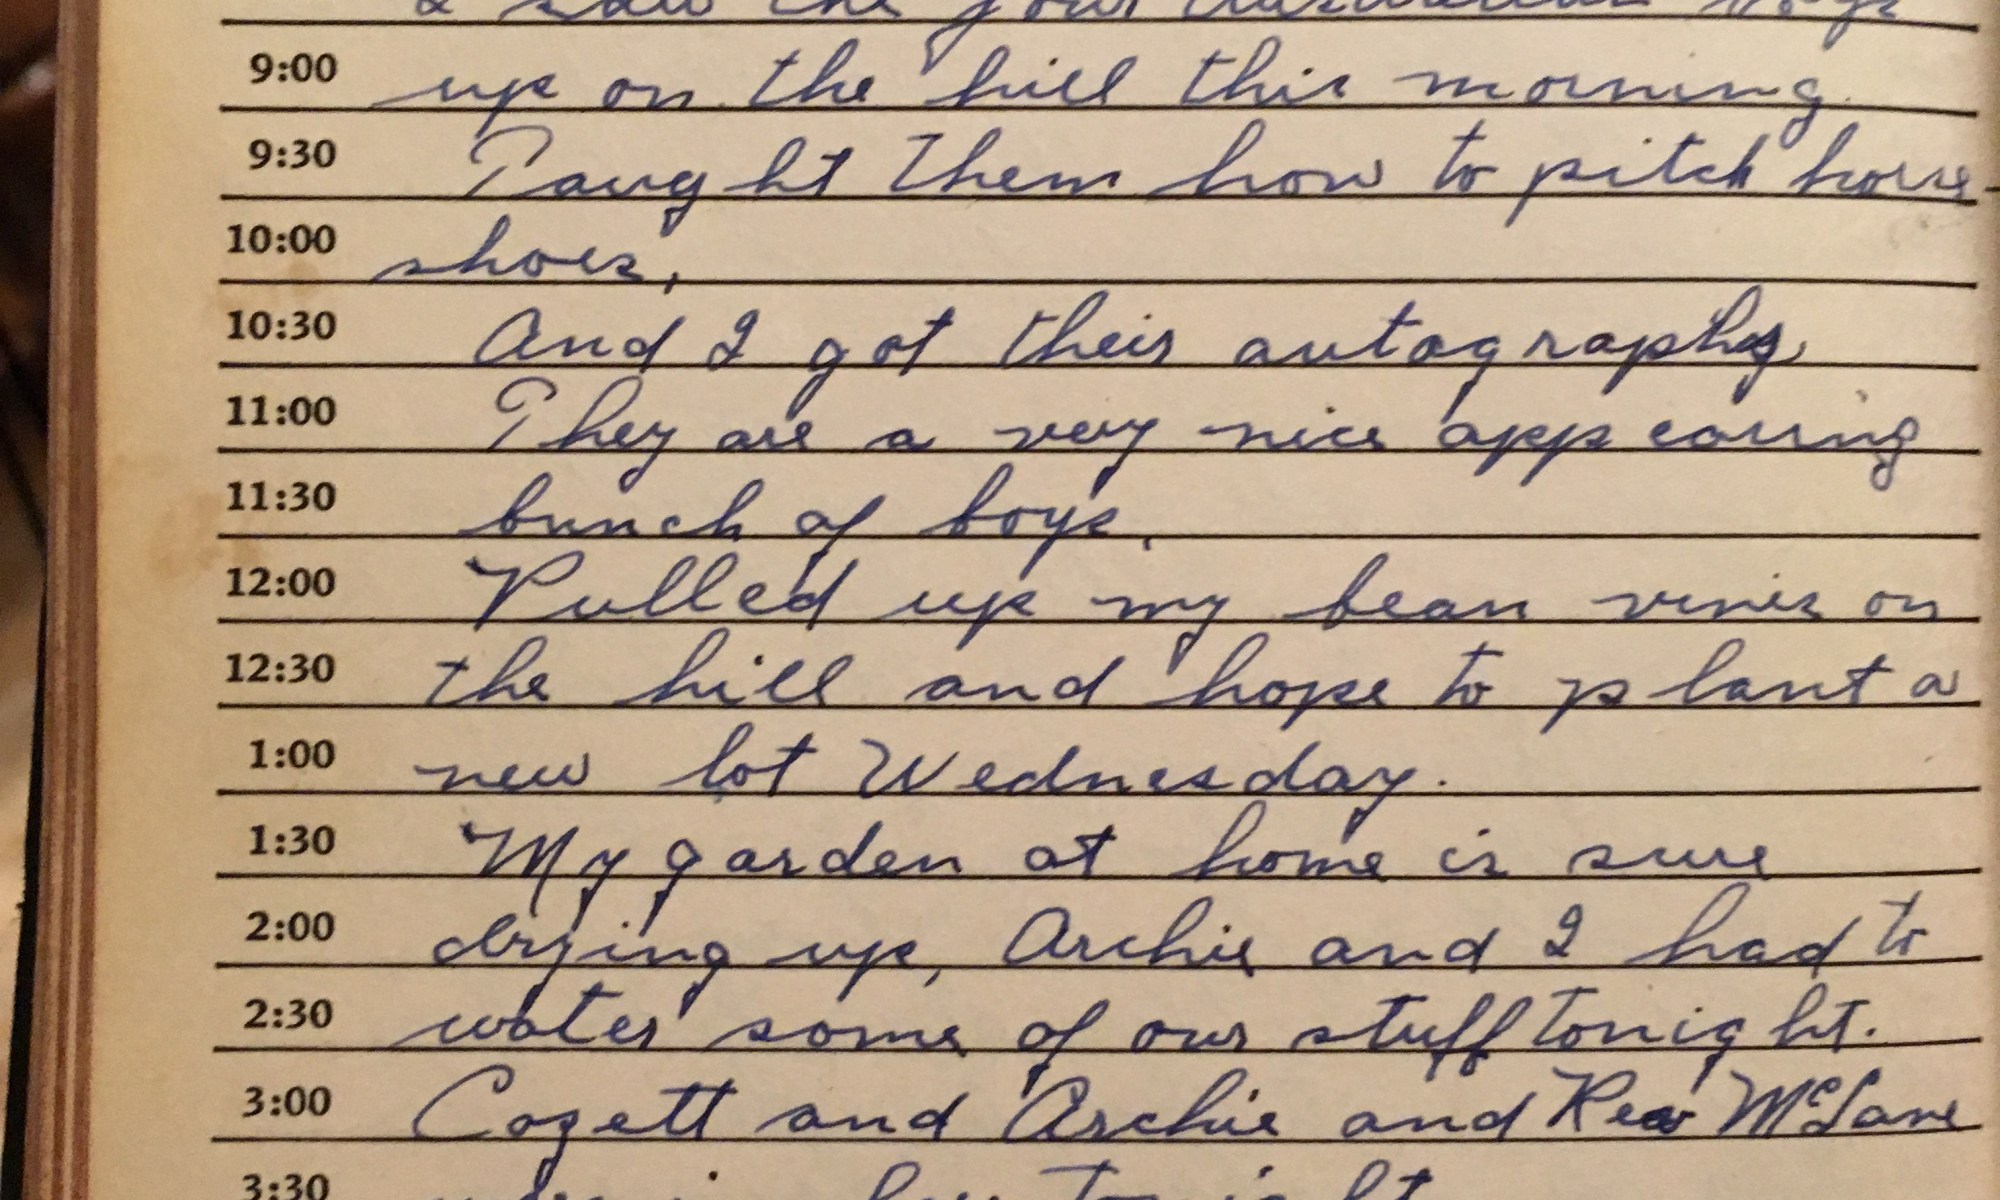 I saw the four Australian boys
9:00 up on the hill this morning.
9:30 Taught them how to pitch horse-
10:00 shoes,
10:30 And I got their autographs,
11:00 They are a very nice appearing
11:30 bunch of boys.
12:00 Pulled up my bean vines on
12:30 the hill and hope to plant a
1:00 new lot Wednesday.
1:30 My garden at home is sure
2:00 drying up, Archie and I had to
2:30 water some of our stuff tonight.
3:00 Cozett and Archie and Rex McLane
3:30 tonight